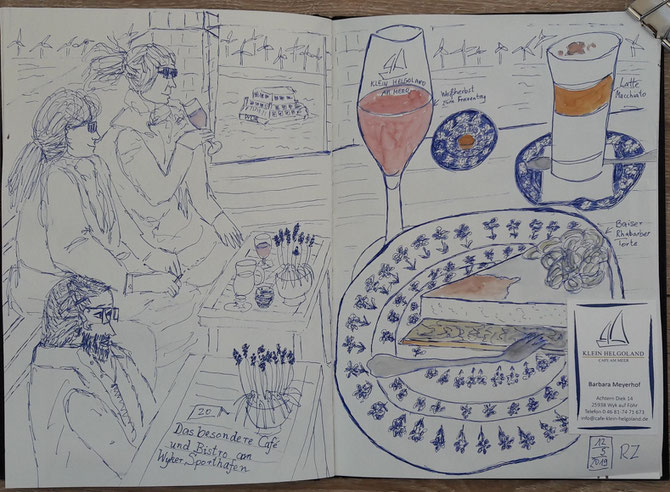 20.
Das besondere Café
und Bistro am
Wyker Sporthafen
KLEIN HELGOLAND
AM MEER
Weißherbst
zum Frauentag
Latte
Macchiato
Baiser
Rhabarber
Torte
KLEIN HELGOLAND
CAFE AM MEER
Barbara Meyerhof
Achtern Diek 14
25938 Wyk auf Föhr
Telefon 0 46 81-74 71 673
info@cafe-klein-helgoland.de
12
5
2019
RZ